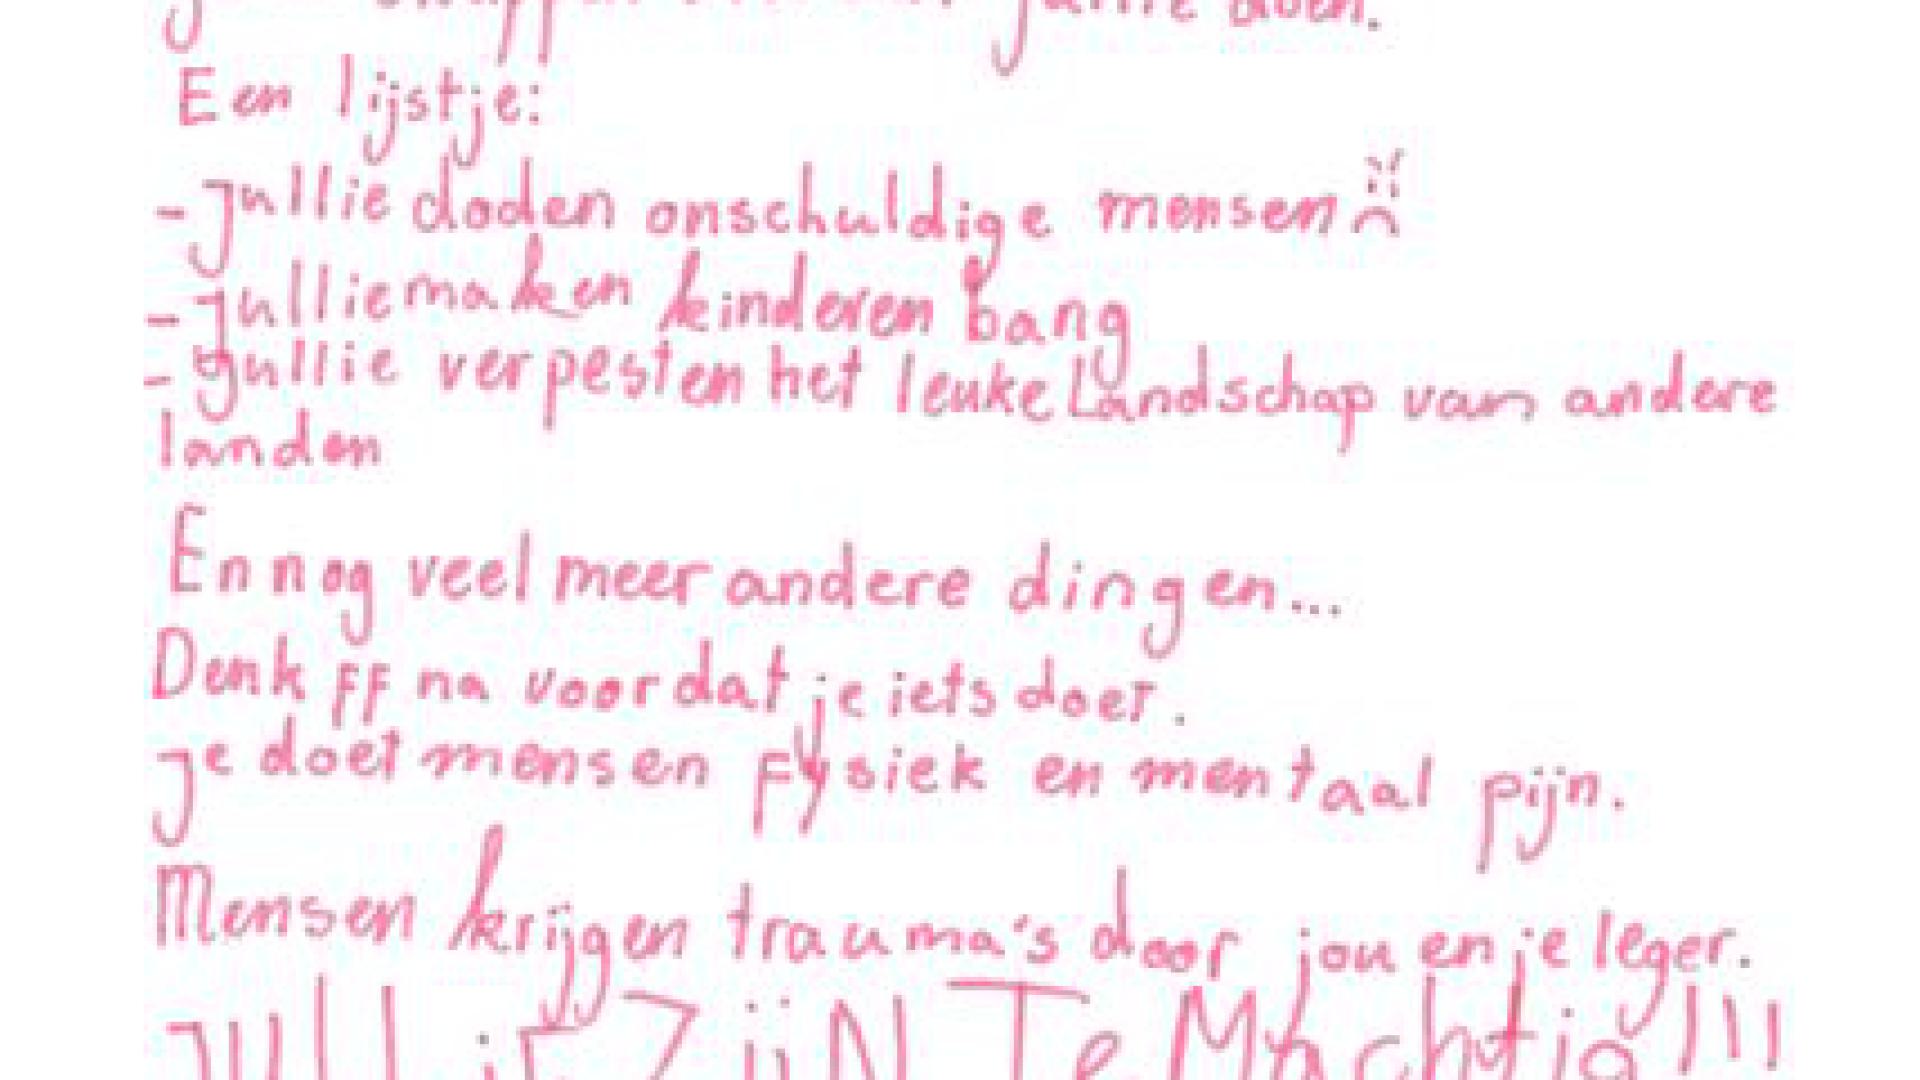 jullie doen.
Een lijstje:
- jullie doden onschuldige mensen
- jullie maken kinderen bang
- jullie verpesten het leuke Landschap van andere
landen
En nog veel meer andere dingen...
Denk ff na voordat je iets doet.
je doet mensen fysiek en mentaal pijn.
Mensen krijgen trauma's door jou en je leger.
jullie ZijN Te Machtig!!!